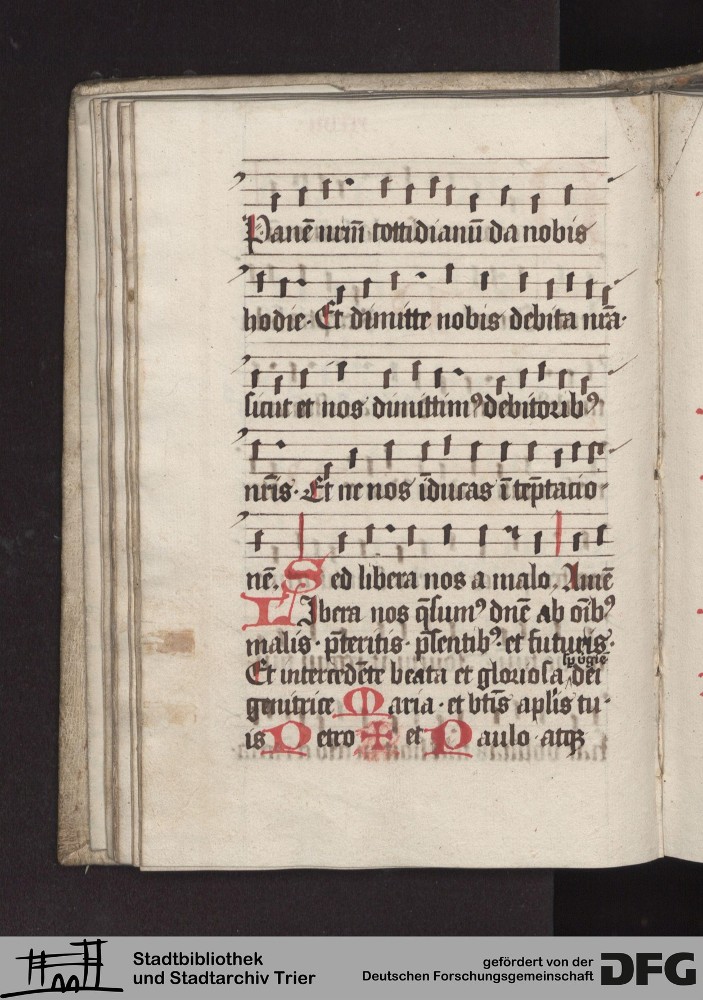 Panē nr̄m̄ cottidianū da nobis
hodie· Et dimitte nobis debita nr̄a·
sicut et nos dimittimꝰ debitoribꝰ
nr̄is· Et ne nos īducas ī tēptatio
nē. Sed libera nos a malo. Amē
LIbera nos q̄sumꝰ dn̄e ab oībꝰ
malis· p̄teritis· p̄sentibꝰ· et futuris·
Et intercedēte beata et gloriosa sp̄ v̄gīe dei
genitrice Maria· et btīs aplīs tu
is Petro ✠ et Paulo· atqꝫ
Stadtbibliothek
und Stadtarchiv Trier
gefördert von der
Deutschen Forschungsgemeinschaft
DFG